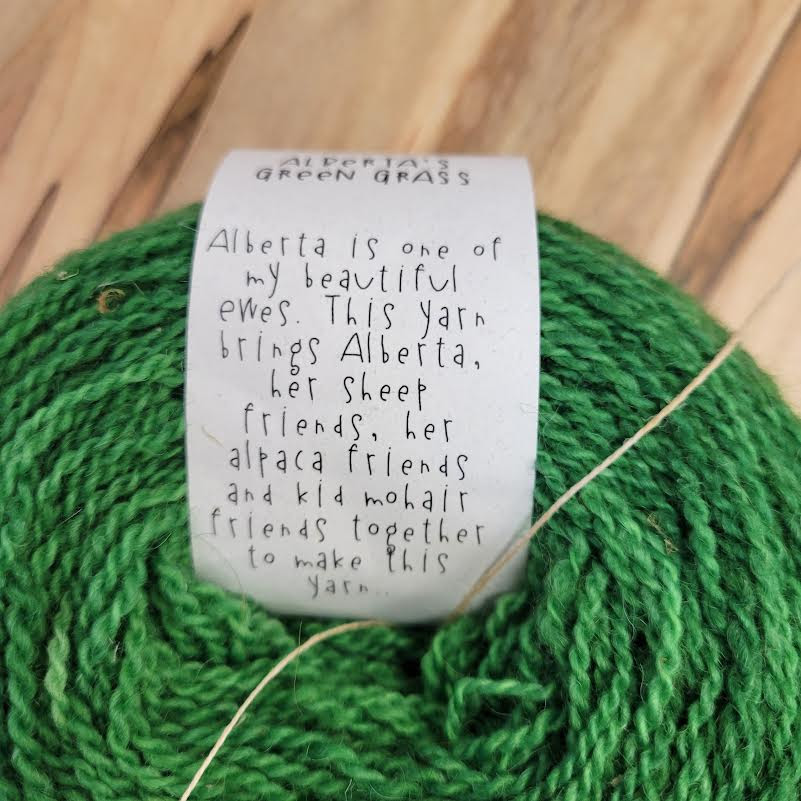 ALBERTA'S
GREEN GRASS
Alberta is one of
my beautiful
ewes. This yarn
brings Alberta,
her sheep
friends, her
alpaca friends
and kid mohair
friends together
to make this
yarn..